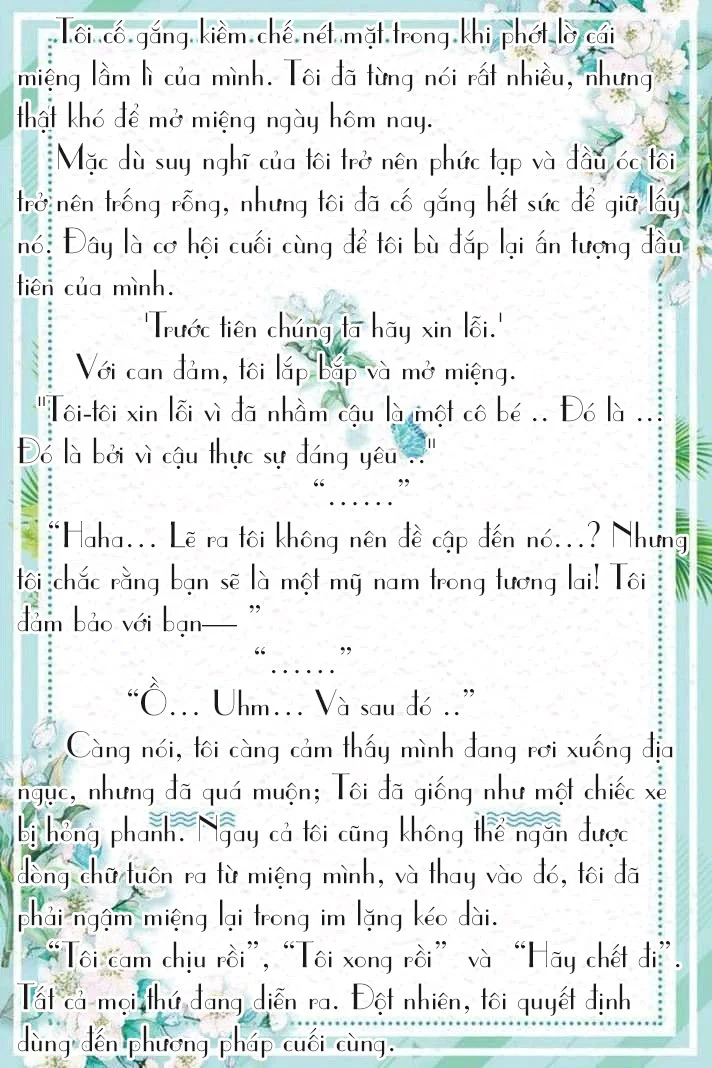 Tôi cố gắng kiềm chế nét mặt trong khi phớt lờ cái
miệng lầm lì của mình. Tôi đã từng nói rất nhiều, nhưng
thật khó để mở miệng ngày hôm nay.
Mặc dù suy nghĩ của tôi trở nên phức tạp và đầu óc tôi
trở nên trống rỗng, nhưng tôi đã cố gắng hết sức để giữ lấy
nó. Đây là cơ hội cuối cùng để tôi bù đắp lại ấn tượng đầu
tiên của mình.
'Trước tiên chúng ta hãy xin lỗi.'
Với can đảm, tôi lắp bắp và mở miệng.
"Tôi-tôi xin lỗi vì đã nhầm cậu là một cô bé .. Đó là ...
Đó là bởi vì cậu thực sự đáng yêu .."
“......”
“Haha... Lẽ ra tôi không nên đề cập đến nó...? Nhưng
tôi chắc rằng bạn sẽ là một mỹ nam trong tương lai! Tôi
đảm bảo với bạn— ”
“......”
“Ồ... Uhm... Và sau đó ..”
Càng nói, tôi càng cảm thấy mình đang rơi xuống địa
ngục, nhưng đã quá muộn; Tôi đã giống như một chiếc xe
bị hỏng phanh. Ngay cả tôi cũng không thể ngăn được
dòng chữ tuôn ra từ miệng mình, và thay vào đó, tôi đã
phải ngậm miệng lại trong im lặng kéo dài.
“Tôi cam chịu rồi”, “Tôi xong rồi” và “Hãy chết đi”.
Tất cả mọi thứ đang diễn ra. Đột nhiên, tôi quyết định
dùng đến phương pháp cuối cùng.